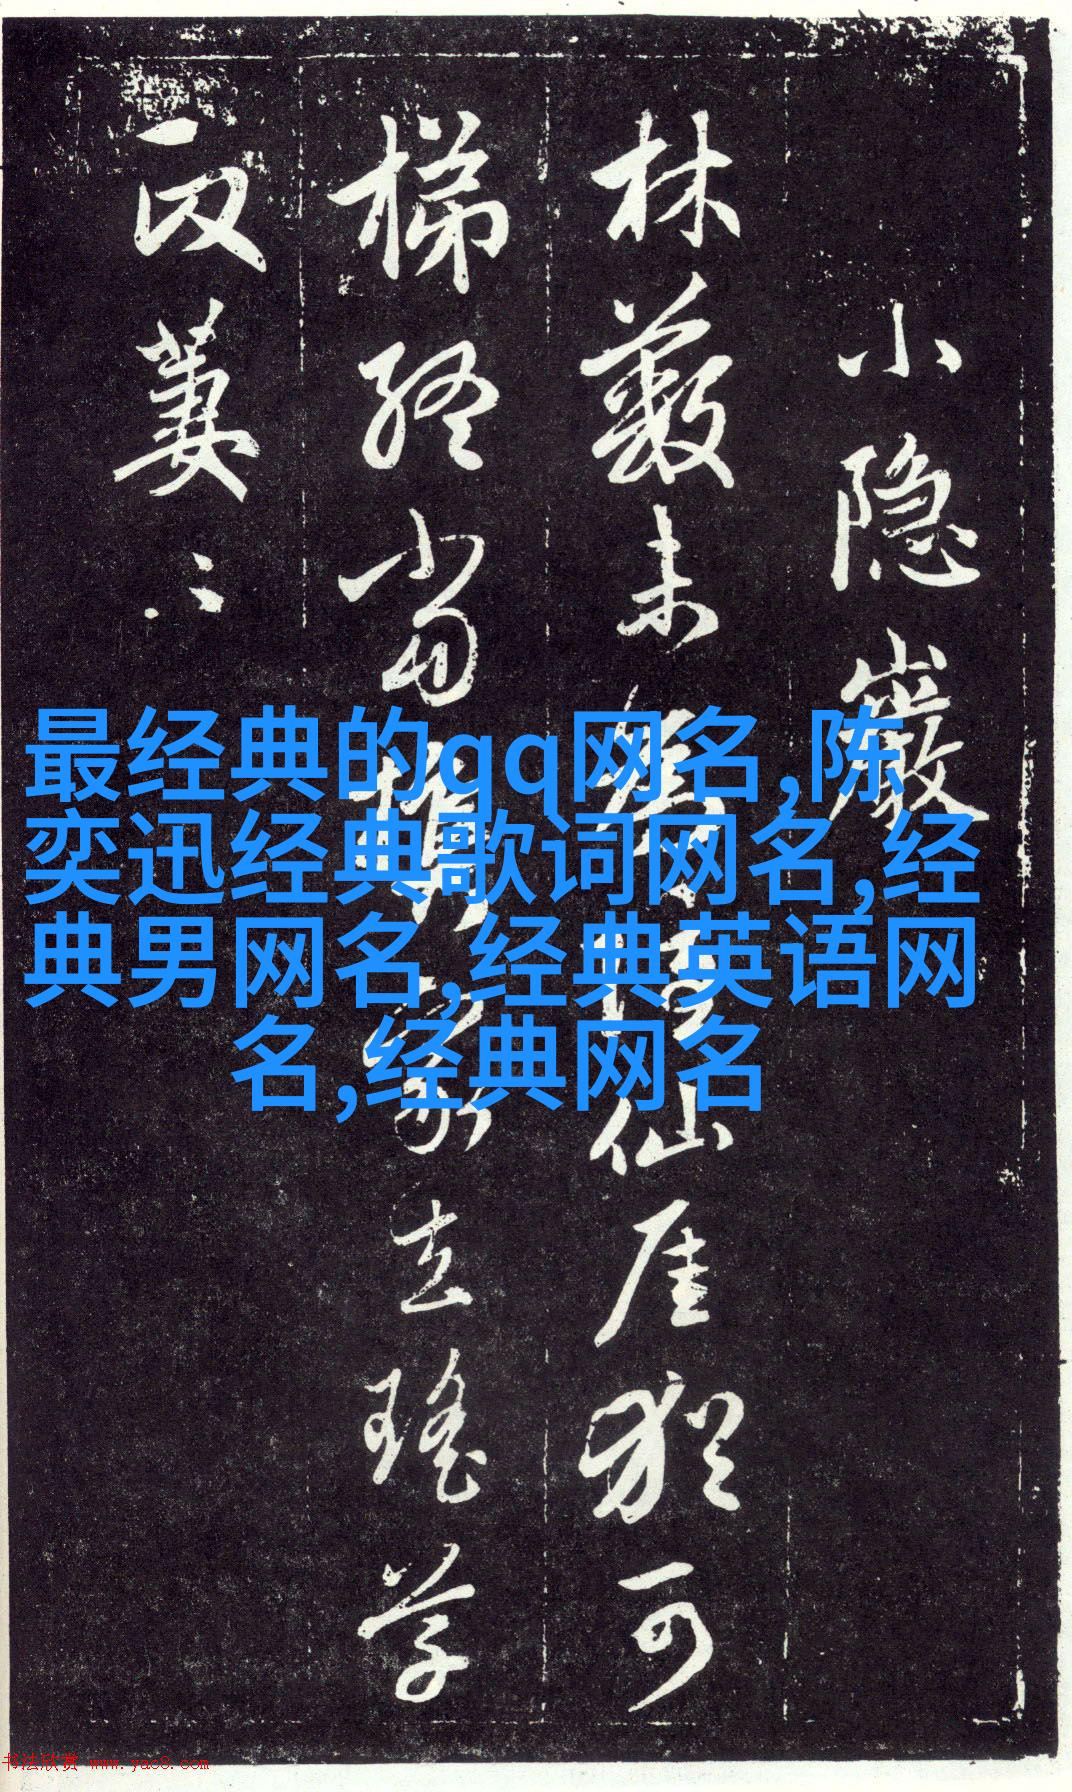 小隐巖
林薮未仙厓猶可
梯終當家去瑶草
萋〻
最经典的qq网名,陈
奕迅经典歌词网名,经
典男网名,经典英语网
名,经典网名
书法欣赏 www.yac8.com